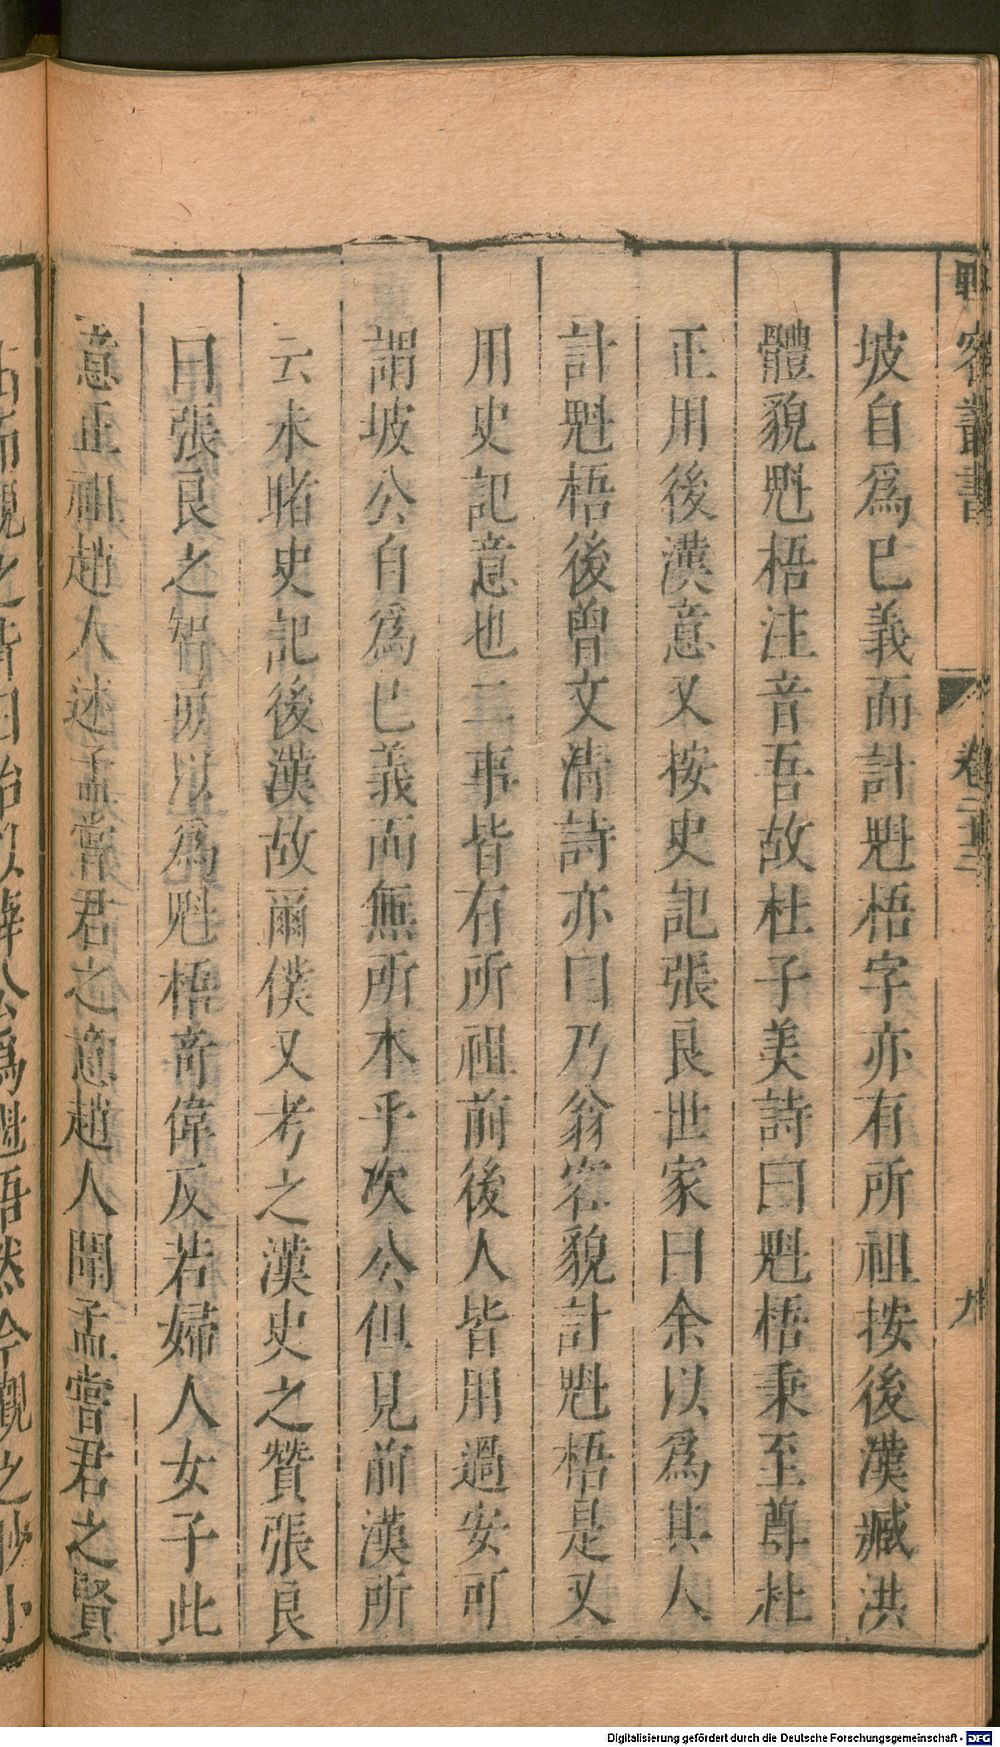 野客叢書
卷二十三
九
坡自爲已義而計魁梧字亦有所祖按後漢臧洪
體貌魁梧注音吾故杜子美詩曰魁梧秉至尊杜
正用後漢意又按史記張良世家曰余以爲其人
計魁梧後曾文清詩亦曰乃翁容貌計魁梧是又
用史記意也二事皆有所祖前後人皆用過安可
謂坡公自爲已義而無所本乎次公但見前漢所
云未睹史記後漢故爾僕又考之漢史之贊張良
曰張良之智勇以爲魁梧奇偉反若婦人女子此
意正祖趙人述孟嘗君之意趙人聞孟嘗君之賢
之皆
爲魁梧然今觀之
Digitalisierung gefördert durch die Deutsche Forschungsgemeinschaft - DFG